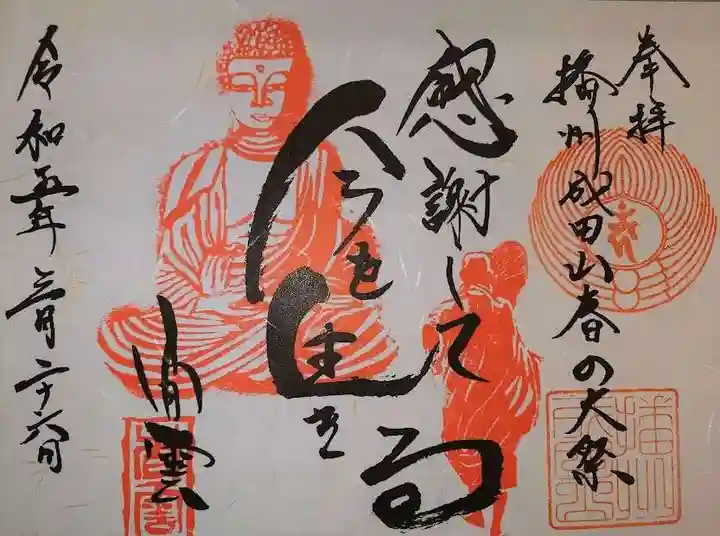 奉拝
播州成田山春の大祭
感謝して
今を生き
る
令和五年三月二十六日